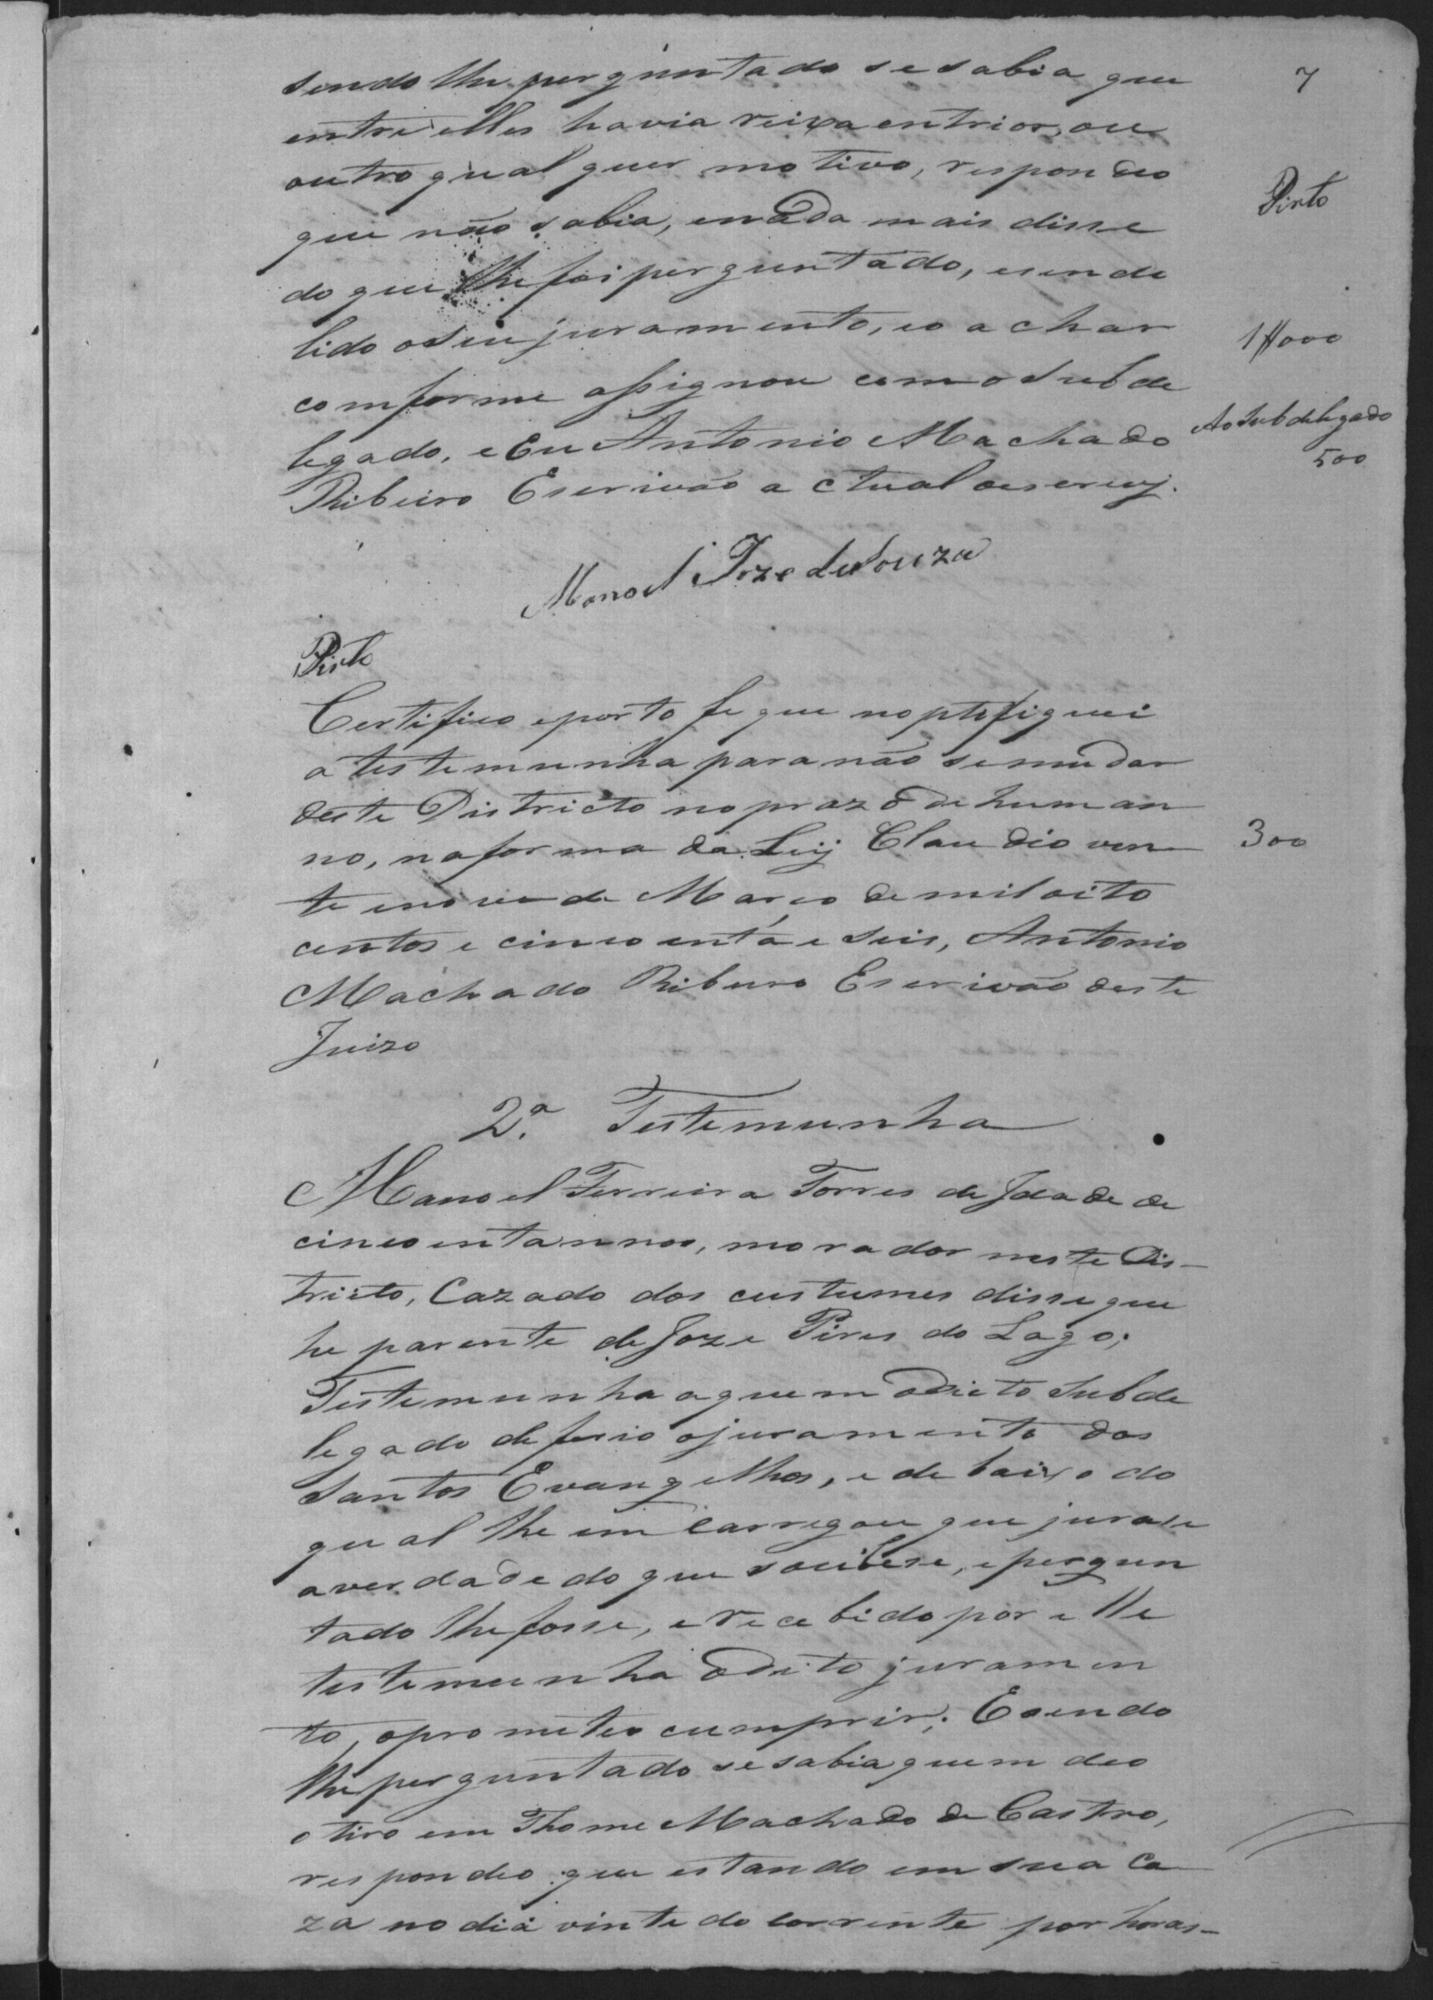 7
sendo lhe perguntado se sabia que
entre elles havia reixa entrior, ou
outro qual quer motivo, respondeo
que não sabia, enada mais disse
do que lhe foi perguntado, esendo
lido o seu juramento, eo achar
comforme assignou com o Subde
legado, e Eu Antonio Machado
Ribeiro Escrivão actual oescrevj.
Pinto
1$000
Ao Subdelegado
500
Manoel Joze de Souza
Pinto
Certifico eporto fe que noptefiquei
a testemunha para não semudar
deste Districto noprazo de human
no, naforma da Leij Claudio vin
te enove de Março de mil oito
centos e cincoenta e seis, Antonio
Machado Ribeiro Escrivão deste
Juizo
300
2.ª Testemunha
Manoel Ferreira Torres de Jdade de
cincoentannos, morador neste Dis-
tricto, Cazado dos custumes disse que
he parente de Joze Pires do Lago;
Testemunha aquem odicto Subde
legado deferio ojuramento dos
Santos Evangelhos, e debaixo do
qual lhe emcarregou que jurase
averdade do que soubese, epergun
tado lhe fosse, erecebido por elle
testemunha odito juramen
to, oprometeo cumprir; Esendo
lhe perguntado se sabia quem deo
o tiro em Thome Machado de Castro,
respondeo que estando em sua Ca
za no dia vinte do corrente por horas-